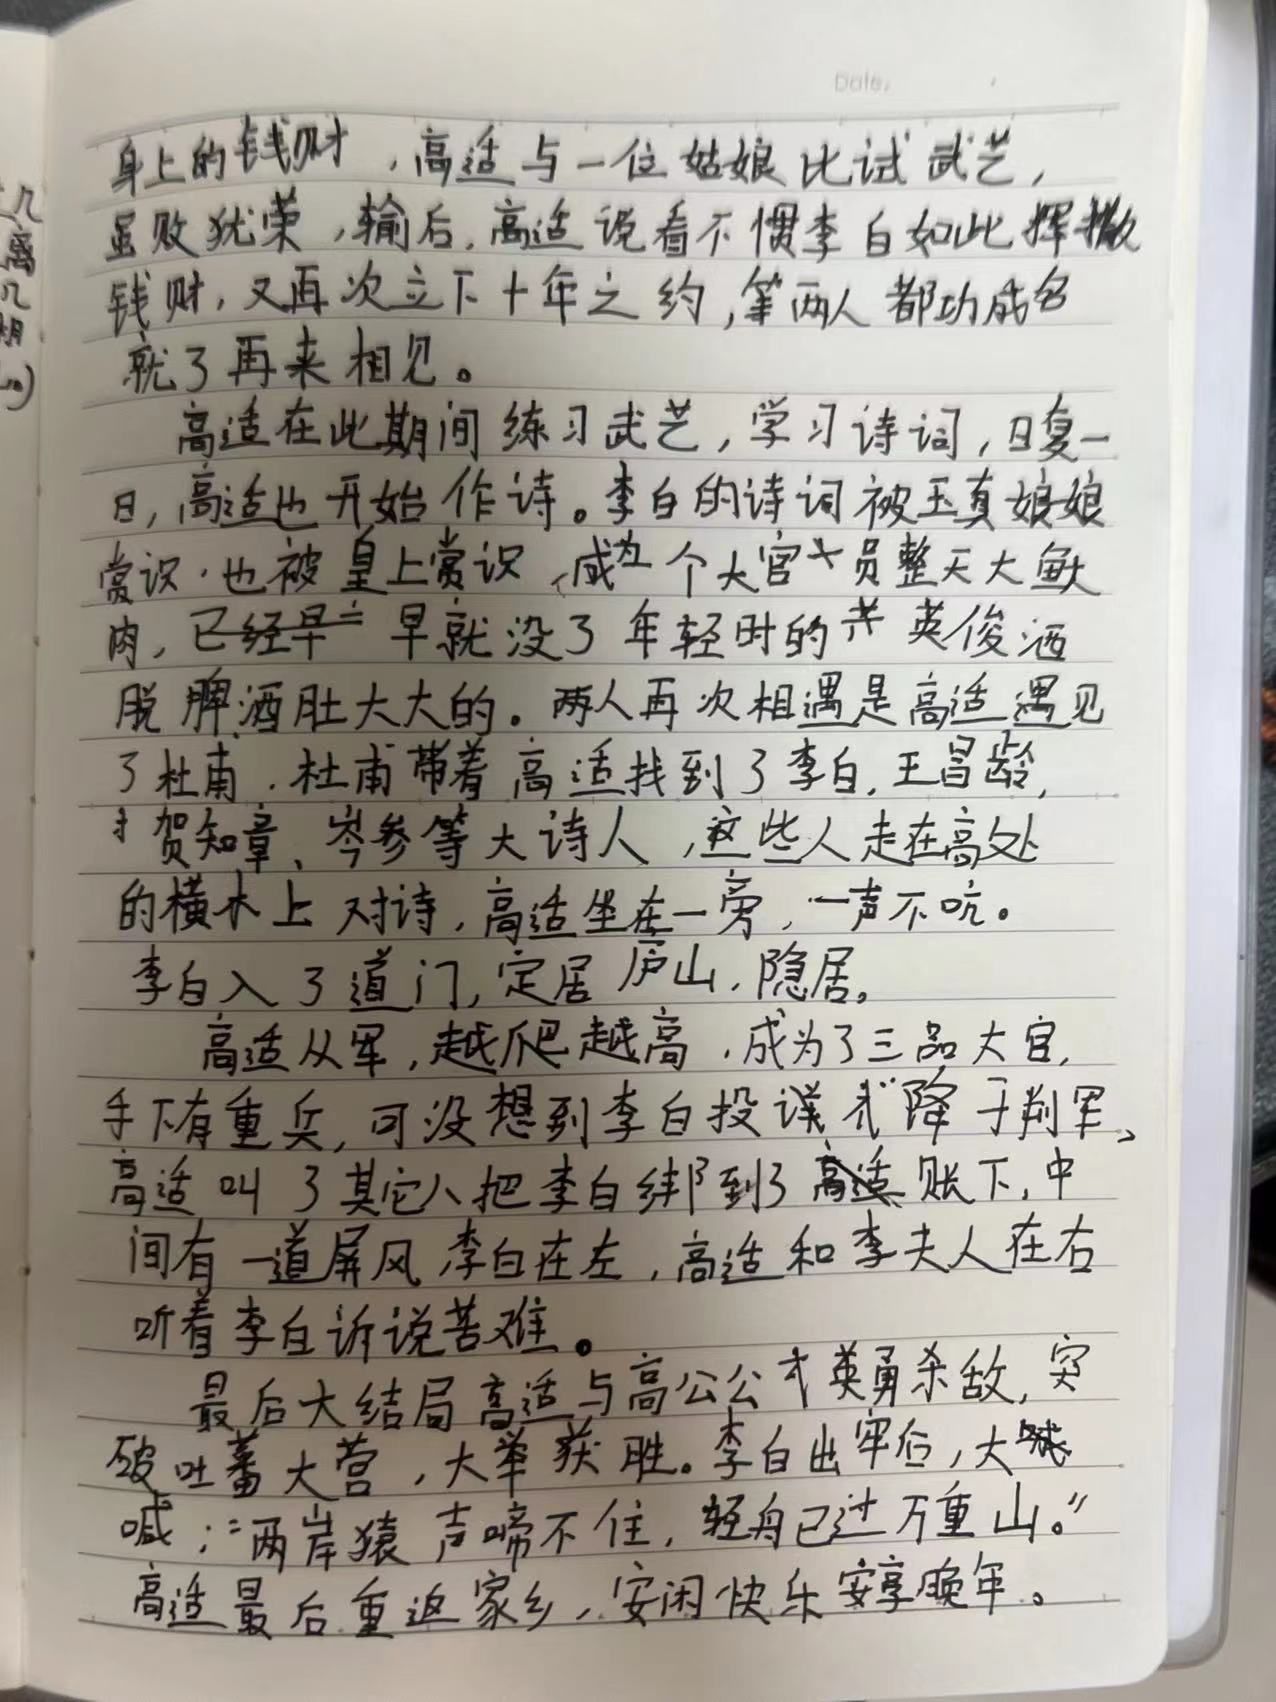 Date.
身上的钱财，高适与一位姑娘比试武艺，
虽败犹荣，输后，高适说看不惯李白如此挥撒
钱财，又再次立下十年之约，等两人都功成名
就了再来相见。
高适在此期间练习武艺，学习诗词，日复一
日，高适也开始作诗。李白的诗词被玉真娘娘
赏识，也被皇上赏识，成为个大官员整天大鱼大
肉，早就没了年轻时的英俊洒
脱脾酒肚大大的。两人再次相遇是高适遇见
了杜甫，杜甫带着高适找到了李白，王昌龄，
贺知章、岑参等大诗人，这些人走在高处
的横木上对诗，高适坐在一旁，一声不吭。
李白入了道门，定居庐山，隐居。
高适从军，越爬越高，成为了三品大官，
手下有重兵，可没想到李白投降于判军，
高适叫了其它人把李白绑到了账下，中
间有一道屏风，李白在左，高适和李夫人在右
听着李白诉说苦难。
最后大结局高适与高公公英勇杀敌，突
破吐蕃大营，大举获胜。李白出牢后，大
喊：“两岸猿声啼不住，轻舟已过万重山。”
高适最后重返家乡，安闲快乐安享晚年。
几
离
几
期